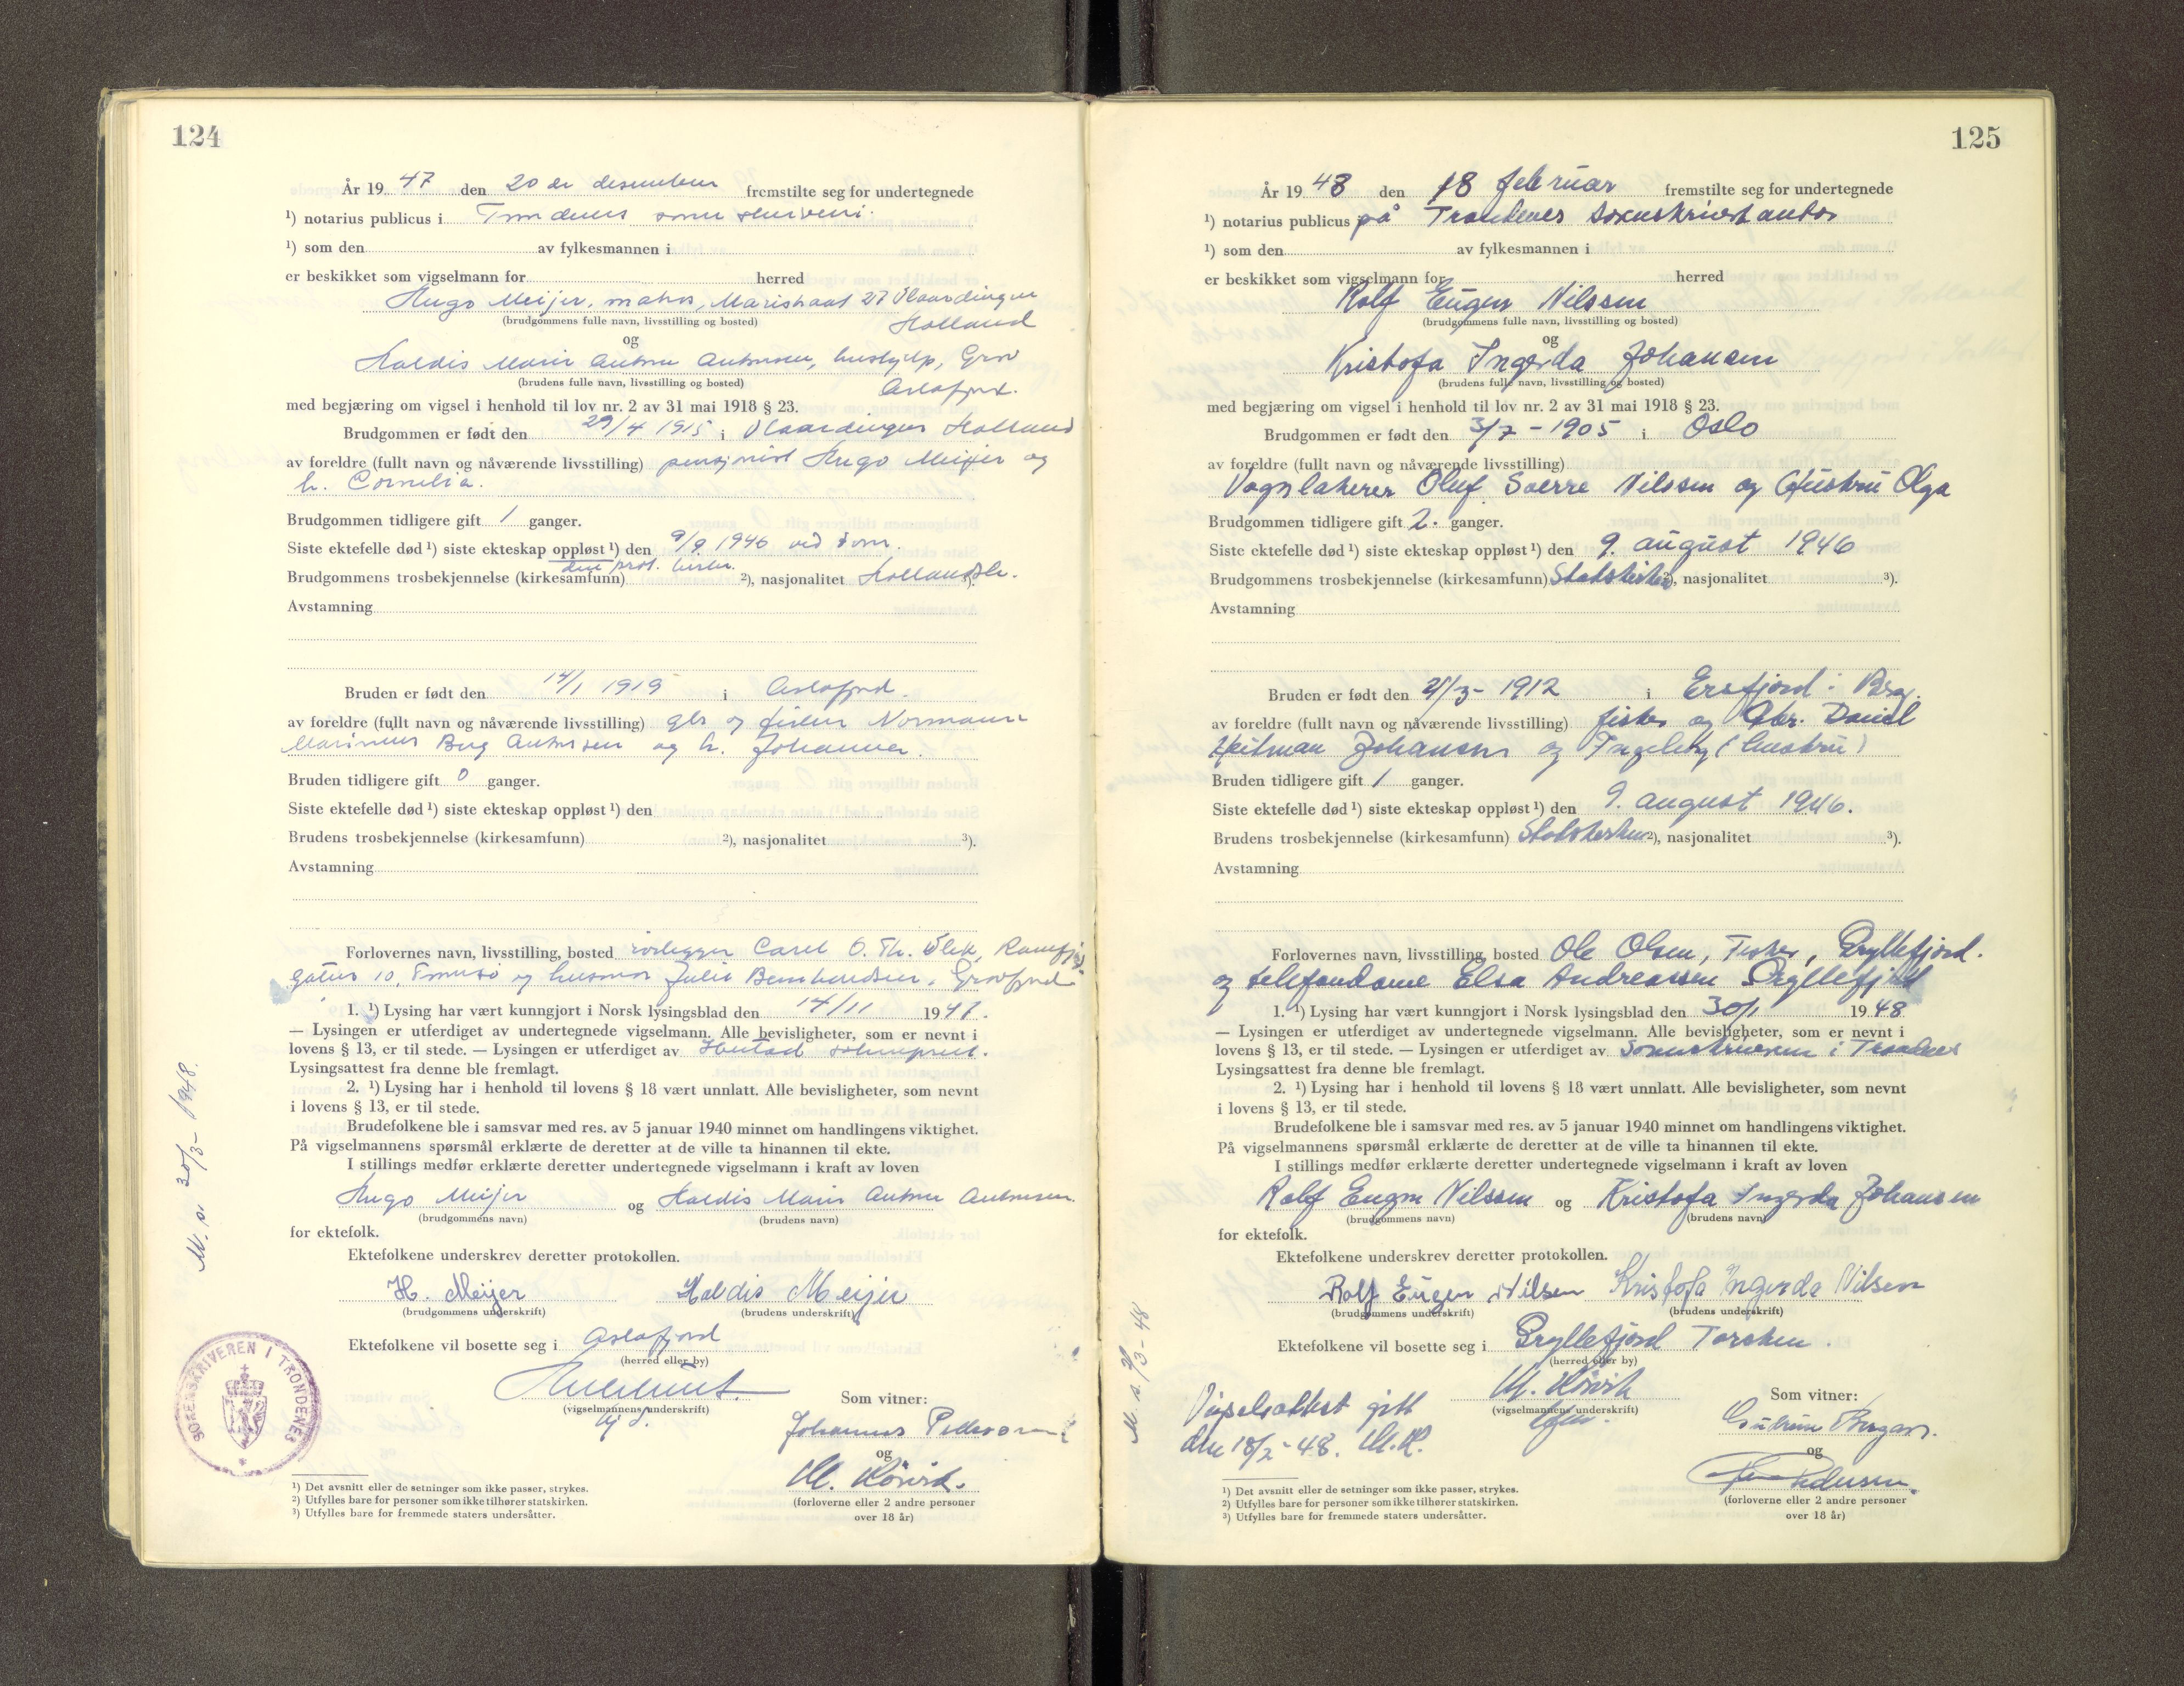 124
År 19 47 den 20 de desember fremstilte seg for undertegnede
¹) notarius publicus i Trondenes sorenskriveri.
¹) som den av fylkesmannen i
er beskikket som vigselmann for herred
Hugo Meijer, matros, Marisstraat 27 Vlaardingen
(brudgommens fulle navn, livsstilling og bosted) Holland
og
Haldis Marie Antonsen, hushjelp, Grov
(brudens fulle navn, livsstilling og bosted) Astafjord.
med begjæring om vigsel i henhold til lov nr. 2 av 31 mai 1918 § 23.
Brudgommen er født den 29/4 1915 i Vlaardingen Holland
av foreldre (fullt navn og nåværende livsstilling) pensjonist Hugo Meijer og
h. Cornelia.
Brudgommen tidligere gift 1 ganger.
Siste ektefelle død ¹) siste ekteskap oppløst ¹) den 9/9 1946 ved dom.
Brudgommens trosbekjennelse (kirkesamfunn) den prot. kirke. ²), nasjonalitet Hollandsk. ³).
Avstamning
Bruden er født den 14/1 1919 i Astafjord.
av foreldre (fullt navn og nåværende livsstilling) gbr og fisker Normann
Marinius Berg Antonsen og h. Johanna.
Bruden tidligere gift 0 ganger.
Siste ektefelle død ¹) siste ekteskap oppløst ¹) den
Brudens trosbekjennelse (kirkesamfunn) ²), nasjonalitet ³).
Avstamning
Forlovernes navn, livsstilling, bosted rørlegger Carel O. Th.
gaten 10, Tromsø og husmor Julie Bernhardsen, Grovfjord
1. ¹) Lysing har vært kunngjort i Norsk lysingsblad den 14/11 1947.
— Lysingen er utferdiget av undertegnede vigselmann. Alle bevisligheter, som er nevnt i
lovens § 13, er til stede. — Lysingen er utferdiget av Ibestad sokneprest.
Lysingsattest fra denne ble fremlagt.
2. ¹) Lysing har i henhold til lovens § 18 vært unnlatt. Alle bevisligheter, som nevnt
i lovens § 13, er til stede.
Brudefolkene ble i samsvar med res. av 5 januar 1940 minnet om handlingens viktighet.
På vigselmannens spørsmål erklærte de deretter at de ville ta hinannen til ekte.
I stillings medfør erklærte deretter undertegnede vigselmann i kraft av loven
Hugo Meijer og Haldis Marie Antonsen
(brudgommens navn) (brudens navn)
for ektefolk.
Ektefolkene underskrev deretter protokollen.
H. Meijer Haldis Meijer
(brudgommens underskrift) (brudens underskrift)
Ektefolkene vil bosette seg i Astafjord
(herred eller by)
(vigselmannens underskrift) Som vitner:
Johannes Pedersen
og
M. Hörvik.
(forloverne eller 2 andre personer
over 18 år)
¹) Det avsnitt eller de setninger som ikke passer, strykes.
²) Utfylles bare for personer som ikke tilhører statskirken.
³) Utfylles bare for fremmede staters undersåtter.
M. s. 30/3- 1948.
SORENSKRIVEREN I TRONDENES
125
År 19 48 den 18 februar fremstilte seg for undertegnede
¹) notarius publicus på Trondenes sorenskriverkontor
¹) som den av fylkesmannen i
er beskikket som vigselmann for herred
Rolf Eugen Nilssen
(brudgommens fulle navn, livsstilling og bosted)
og
Kristofa Ingerda Johansen
(brudens fulle navn, livsstilling og bosted)
med begjæring om vigsel i henhold til lov nr. 2 av 31 mai 1918 § 23.
Brudgommen er født den 3/7 - 1905 i Oslo
av foreldre (fullt navn og nåværende livsstilling)
Vognlakerer Oluf Sverre Nilssen og hustru Olga
Brudgommen tidligere gift 2. ganger.
Siste ektefelle død ¹) siste ekteskap oppløst ¹) den 9. august 1946
Brudgommens trosbekjennelse (kirkesamfunn) Statskirken ²), nasjonalitet ³).
Avstamning
Bruden er født den 21/3- 1912 i Ersfjord i Berg.
av foreldre (fullt navn og nåværende livsstilling) fisker og Gbr. Daniel
Heitman Johansen og Ingeborg (hustru)
Bruden tidligere gift 1 ganger.
Siste ektefelle død ¹) siste ekteskap oppløst ¹) den 9. august 1946.
Brudens trosbekjennelse (kirkesamfunn) Statskirken ²), nasjonalitet ³).
Avstamning
Forlovernes navn, livsstilling, bosted Ole Olsen, Fisker, Gryllefjord.
og telefondame Elsa Andreassen Gryllefjord
1. ¹) Lysing har vært kunngjort i Norsk lysingsblad den 30/1 1948
— Lysingen er utferdiget av undertegnede vigselmann. Alle bevisligheter, som er nevnt i
lovens § 13, er til stede. — Lysingen er utferdiget av Sorenskriveren i Trondenes
Lysingsattest fra denne ble fremlagt.
2. ¹) Lysing har i henhold til lovens § 18 vært unnlatt. Alle bevisligheter, som nevnt
i lovens § 13, er til stede.
Brudefolkene ble i samsvar med res. av 5 januar 1940 minnet om handlingens viktighet.
På vigselmannens spørsmål erklærte de deretter at de ville ta hinannen til ekte.
I stillings medfør erklærte deretter undertegnede vigselmann i kraft av loven
Rolf Eugen Nilssen og Kristofa Ingerda Johansen
(brudgommens navn) (brudens navn)
for ektefolk.
Ektefolkene underskrev deretter protokollen.
Rolf Eugen Nilsen Kristofa Ingerda Nilsen
(brudgommens underskrift) (brudens underskrift)
Ektefolkene vil bosette seg i Gryllefjord Torsken.
(herred eller by)
M. Hörvik
(vigselmannens underskrift) Som vitner:
og
Pedersen.
(forloverne eller 2 andre personer
over 18 år)
Vigselsattest gitt
den 18/2-48. M.H.
¹) Det avsnitt eller de setninger som ikke passer, strykes.
²) Utfylles bare for personer som ikke tilhører statskirken.
³) Utfylles bare for fremmede staters undersåtter.